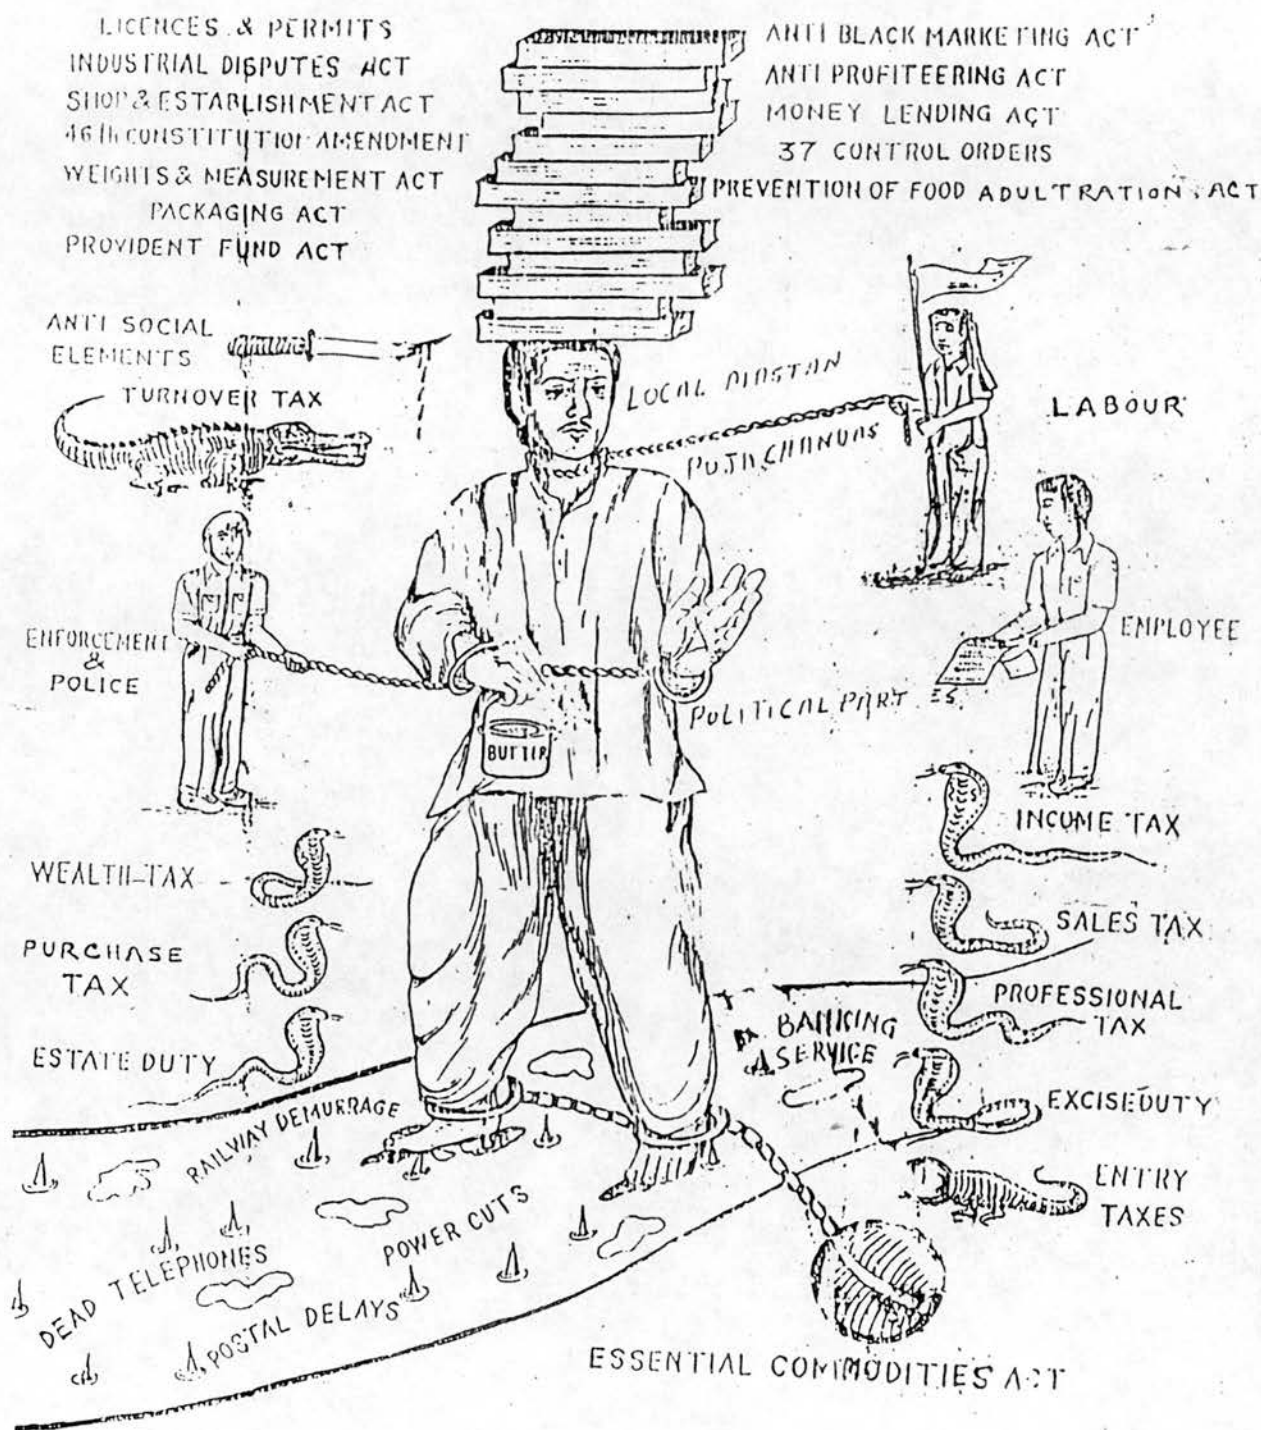 LICENCES & PERMITS
INDUSTRIAL DISPUTES ACT
SHOP & ESTABLISHMENT ACT
46th CONSTITUTION AMENDMENT
WEIGHTS & MEASUREMENT ACT
PACKAGING ACT
PROVIDENT FUND ACT
ANTI BLACK MARKETING ACT
ANTI PROFITEERING ACT
MONEY LENDING ACT
37 CONTROL ORDERS
PREVENTION OF FOOD ADULTRATION. ACT
ANTI SOCIAL
ELEMENTS
TURNOVER TAX
LOCAL MASTAN
PUJA CHANDAS
LABOUR
ENFORCEMENT
&
POLICE
EMPLOYEE
POLITICAL PARTIES
BUTTER
WEALTH-TAX
PURCHASE
TAX
ESTATE DUTY
INCOME TAX
SALES TAX
PROFESSIONAL
TAX
BANKING
SERVICE
EXCISE DUTY
ENTRY
TAXES
RAILWAY DEMURRAGE
DEAD TELEPHONES
POWER CUTS
POSTAL DELAYS
ESSENTIAL COMMODITIES ACT